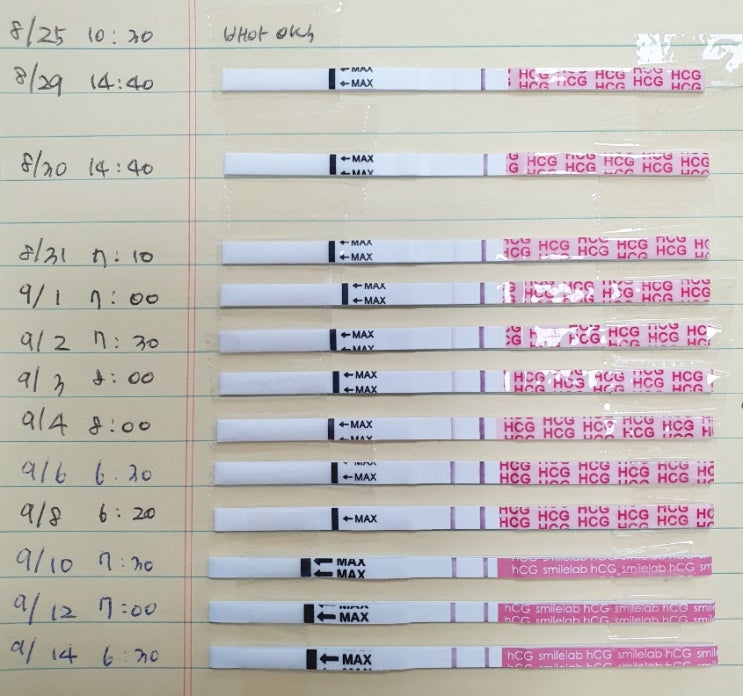 8/25 10:30 배아
8/29 14:40 MAX HCG HCG HCG
←MAX HCG HCG HCG
8/30 14:40 ←MAX HCG HCG HCG HCG HCG
MAX HCG HCG HCG HCG
8/31 7:10 MAX HCG HCG HCG
←MAX HCG HCG HCG
9/1 7:00 ←MAX HCG HCG HCG
←MAX HCG HCG
9/2 7:30 ←MAX HCG HCG
MAX HCG HCG HCG
9/3 8:00 MAX HCG HCG HCG
←MAX HCG HCG
9/4 8:00 ←MAX HCG HCG HCG HCG HCG
MAX HCG HCG HCG
9/6 6:30 MAX HCG HCG HCG
←MAX HCG HCG HCG HCG HCG
9/8 6:20 HCG HCG HCG HCG HCG
←MAX HCG HCG HCG HCG HCG
9/10 7:30 ←MAX
←MAX hCG smilelab hCG smilelab hCG sm
9/12 7:00 MAX hCG smilelab hCG smilelab hCG smil
←MAX
9/14 6:30 ←MAX hCG smilelab hCG smilelab hCG smil